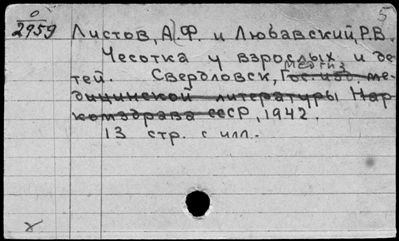 5
0
2959
Листов, А.Ф. и Любавский, Р.В.
Чесотка у взрослых и де-
тей. Свердловск, Медгиз
Гос. изд. ме-
дицинской литературы Нар
комздрава СССР, 1942.
13 стр. с илл.